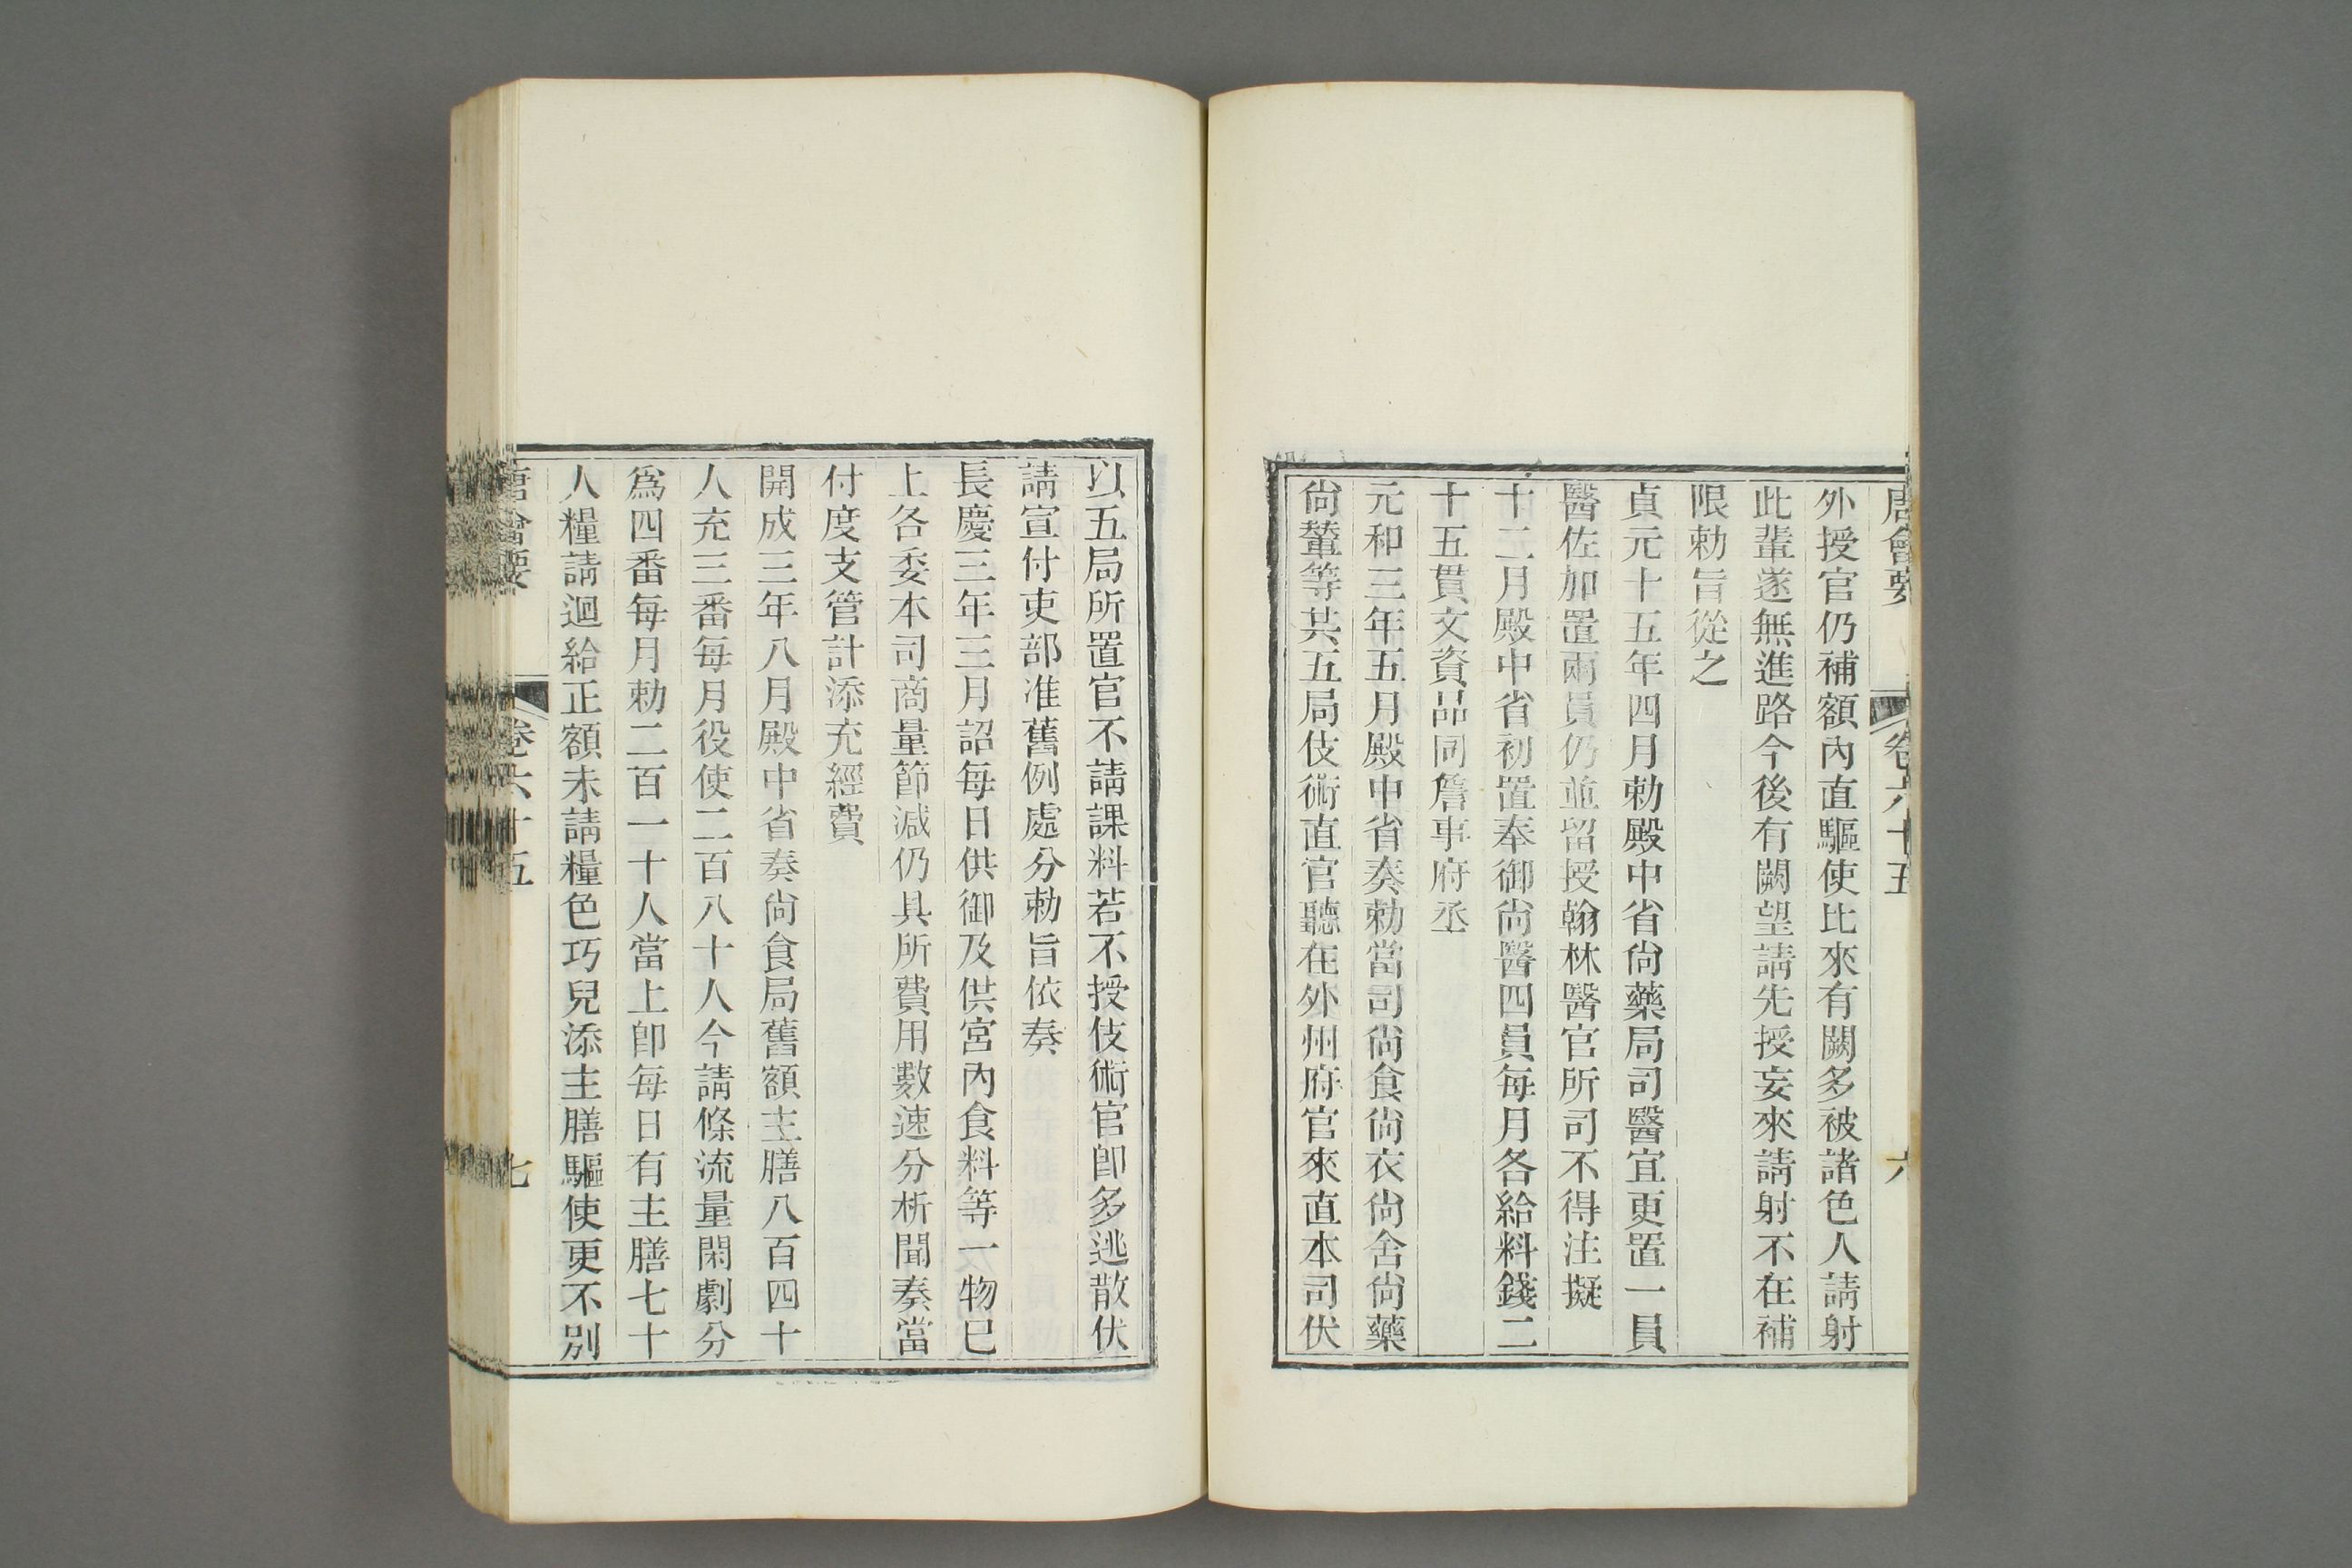 唐會要 卷六十五 六
外授官仍補額內直驅使比來有闕多被諸色人請射
此輩遂無進路今後有闕望請先授妄來請射不在補
限勅旨從之
貞元十五年四月勅殿中省尙藥局司醫宜更置一員
醫佐加置兩員仍並留授翰林醫官所司不得注擬
十二月殿中省初置奉御尙醫四員每月各給料錢二
十五貫文資品同詹事府丞
元和三年五月殿中省奏勅當司尙食尙衣尙舍尙藥
尙輦等其五局伎術直官聽在外州府官來直本司伏
以五局所置官不請課料若不授伎術官卽多逃散伏
請宣付吏部准舊例處分勅旨依奏
長慶三年三月詔每日供御及供宮內食料等一物已
上各委本司商量節減仍具所費用數速分析聞奏當
付度支管計添充經費
開成三年八月殿中省奏尙食局舊額主膳八百四十
人充三番每月役使二百八十人今請條流量閑劇分
爲四番每月勅二百一十人當上卽每日有主膳七十
人糧請迴給正額未請糧色巧兒添主膳驅使更不別
唐會要 卷六十五 七